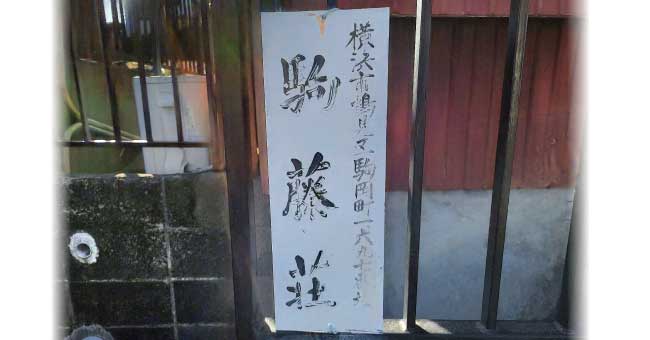 横浜市鶴見区駒岡町一六九
駒藤荘